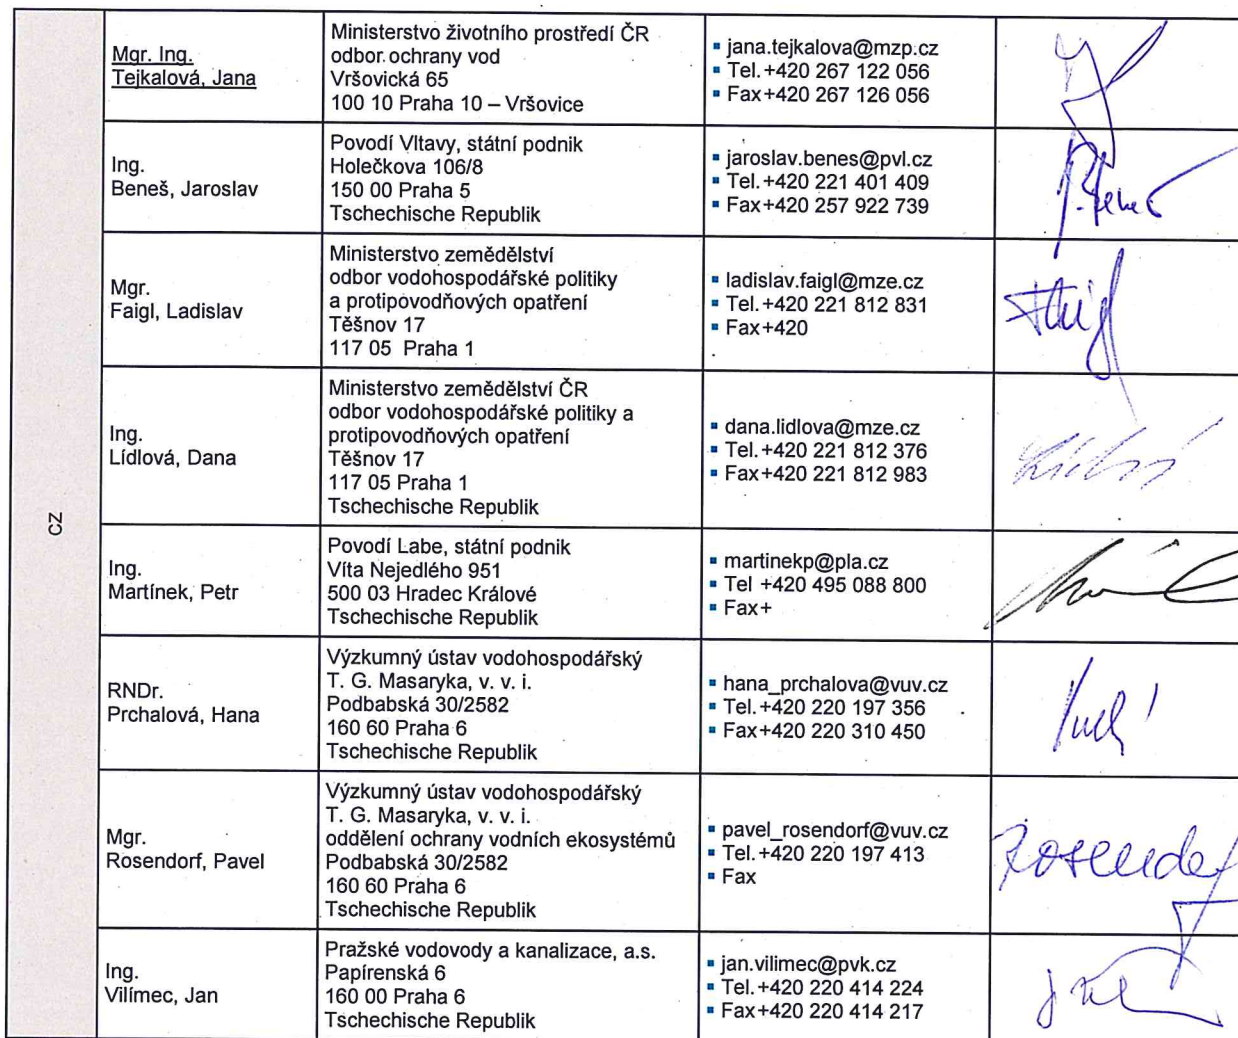 CZ
Mgr. Ing.
Tejkalová, Jana
Ministerstvo životního prostředí ČR
odbor ochrany vod
Vršovická 65
100 10 Praha 10 – Vršovice
▪ jana.tejkalova@mzp.cz
▪ Tel.+420 267 122 056
▪ Fax+420 267 126 056
Ing.
Beneš, Jaroslav
Povodí Vltavy, státní podnik
Holečkova 106/8
150 00 Praha 5
Tschechische Republik
▪ jaroslav.benes@pvl.cz
▪ Tel.+420 221 401 409
▪ Fax+420 257 922 739
Mgr.
Faigl, Ladislav
Ministerstvo zemědělství
odbor vodohospodářské politiky
a protipovodňových opatření
Těšnov 17
117 05 Praha 1
▪ ladislav.faigl@mze.cz
▪ Tel.+420 221 812 831
▪ Fax+420
Ing.
Lídlová, Dana
Ministerstvo zemědělství ČR
odbor vodohospodářské politiky a
protipovodňových opatření
Těšnov 17
117 05 Praha 1
Tschechische Republik
▪ dana.lidlova@mze.cz
▪ Tel.+420 221 812 376
▪ Fax+420 221 812 983
Ing.
Martínek, Petr
Povodí Labe, státní podnik
Víta Nejedlého 951
500 03 Hradec Králové
Tschechische Republik
▪ martinekp@pla.cz
▪ Tel +420 495 088 800
▪ Fax+
RNDr.
Prchalová, Hana
Výzkumný ústav vodohospodářský
T. G. Masaryka, v. v. i.
Podbabská 30/2582
160 60 Praha 6
Tschechische Republik
▪ hana_prchalova@vuv.cz
▪ Tel.+420 220 197 356
▪ Fax+420 220 310 450
Mgr.
Rosendorf, Pavel
Výzkumný ústav vodohospodářský
T. G. Masaryka, v. v. i.
oddělení ochrany vodních ekosystémů
Podbabská 30/2582
160 60 Praha 6
Tschechische Republik
▪ pavel_rosendorf@vuv.cz
▪ Tel.+420 220 197 413
▪ Fax
Ing.
Vilímec, Jan
Pražské vodovody a kanalizace, a.s.
Papírenská 6
160 00 Praha 6
Tschechische Republik
▪ jan.vilimec@pvk.cz
▪ Tel.+420 220 414 224
▪ Fax+420 220 414 217